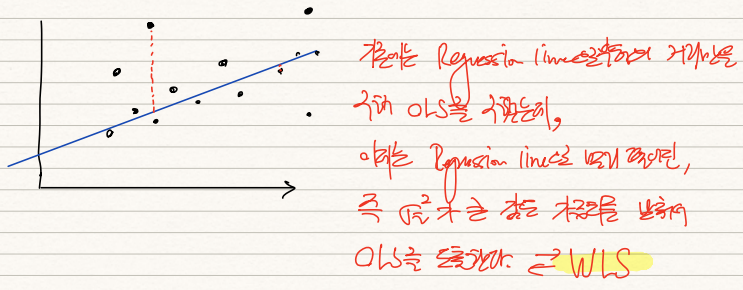 기존에는 Regression line으로부터의 거리만을
구해 OLS를 구했는데,
이제는 Regression line으로 멀리 떨어진,
즉 σᵢ²가 큰 값은 가중치를 낮춰서
OLS를 도출한다. ⇄ WLS